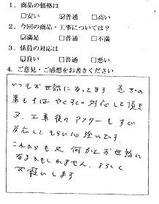 1. 商品の価格は
□安い ☑普通 □高い
2. 今回の商品・工事については?
☑満足 □普通 □不満
3. 係員の対応は
☑良い □普通 □悪い
4. ご意見・ご感想をお書きください
いつもお世話になってます 急ぎの
にも
対応して頂き
又、工事後のアフターもすぐ
対応してもらい
これからも又何かとお世話に
なるかもしれません、よろしく
お願いします